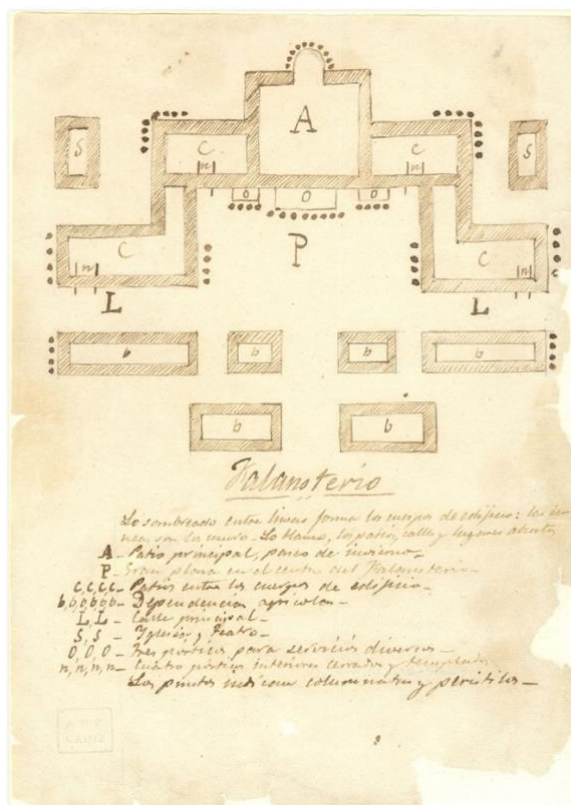 A
S
C
n
C
n
S
O
O
O
C
n
P
C
n
L
L
b
b
b
b
b
b
Falansterio
Lo sombreado entre lineas forma los cuerpos de edificio: las
nea, son los muro. Lo blanco, los patios, calles y lugares abiertos
A - Patio principal, paseo de invierno -
P - Gran plaza en el centro del Falansterio -
C, C, C, C - Patios entre los cuerpos de edificio -
b, b, b, b, b, b - Dependencias agricolas -
L, L - Calle principal -
S, S - Yglesia y Teatro -
O, O, O - Tres pórticos para servicios diversos -
n, n, n, n - Cuatro pórticos interiores cerrados y templados
Los puntos indican columnatas y peristilos -
A.H.P.
CADIZ